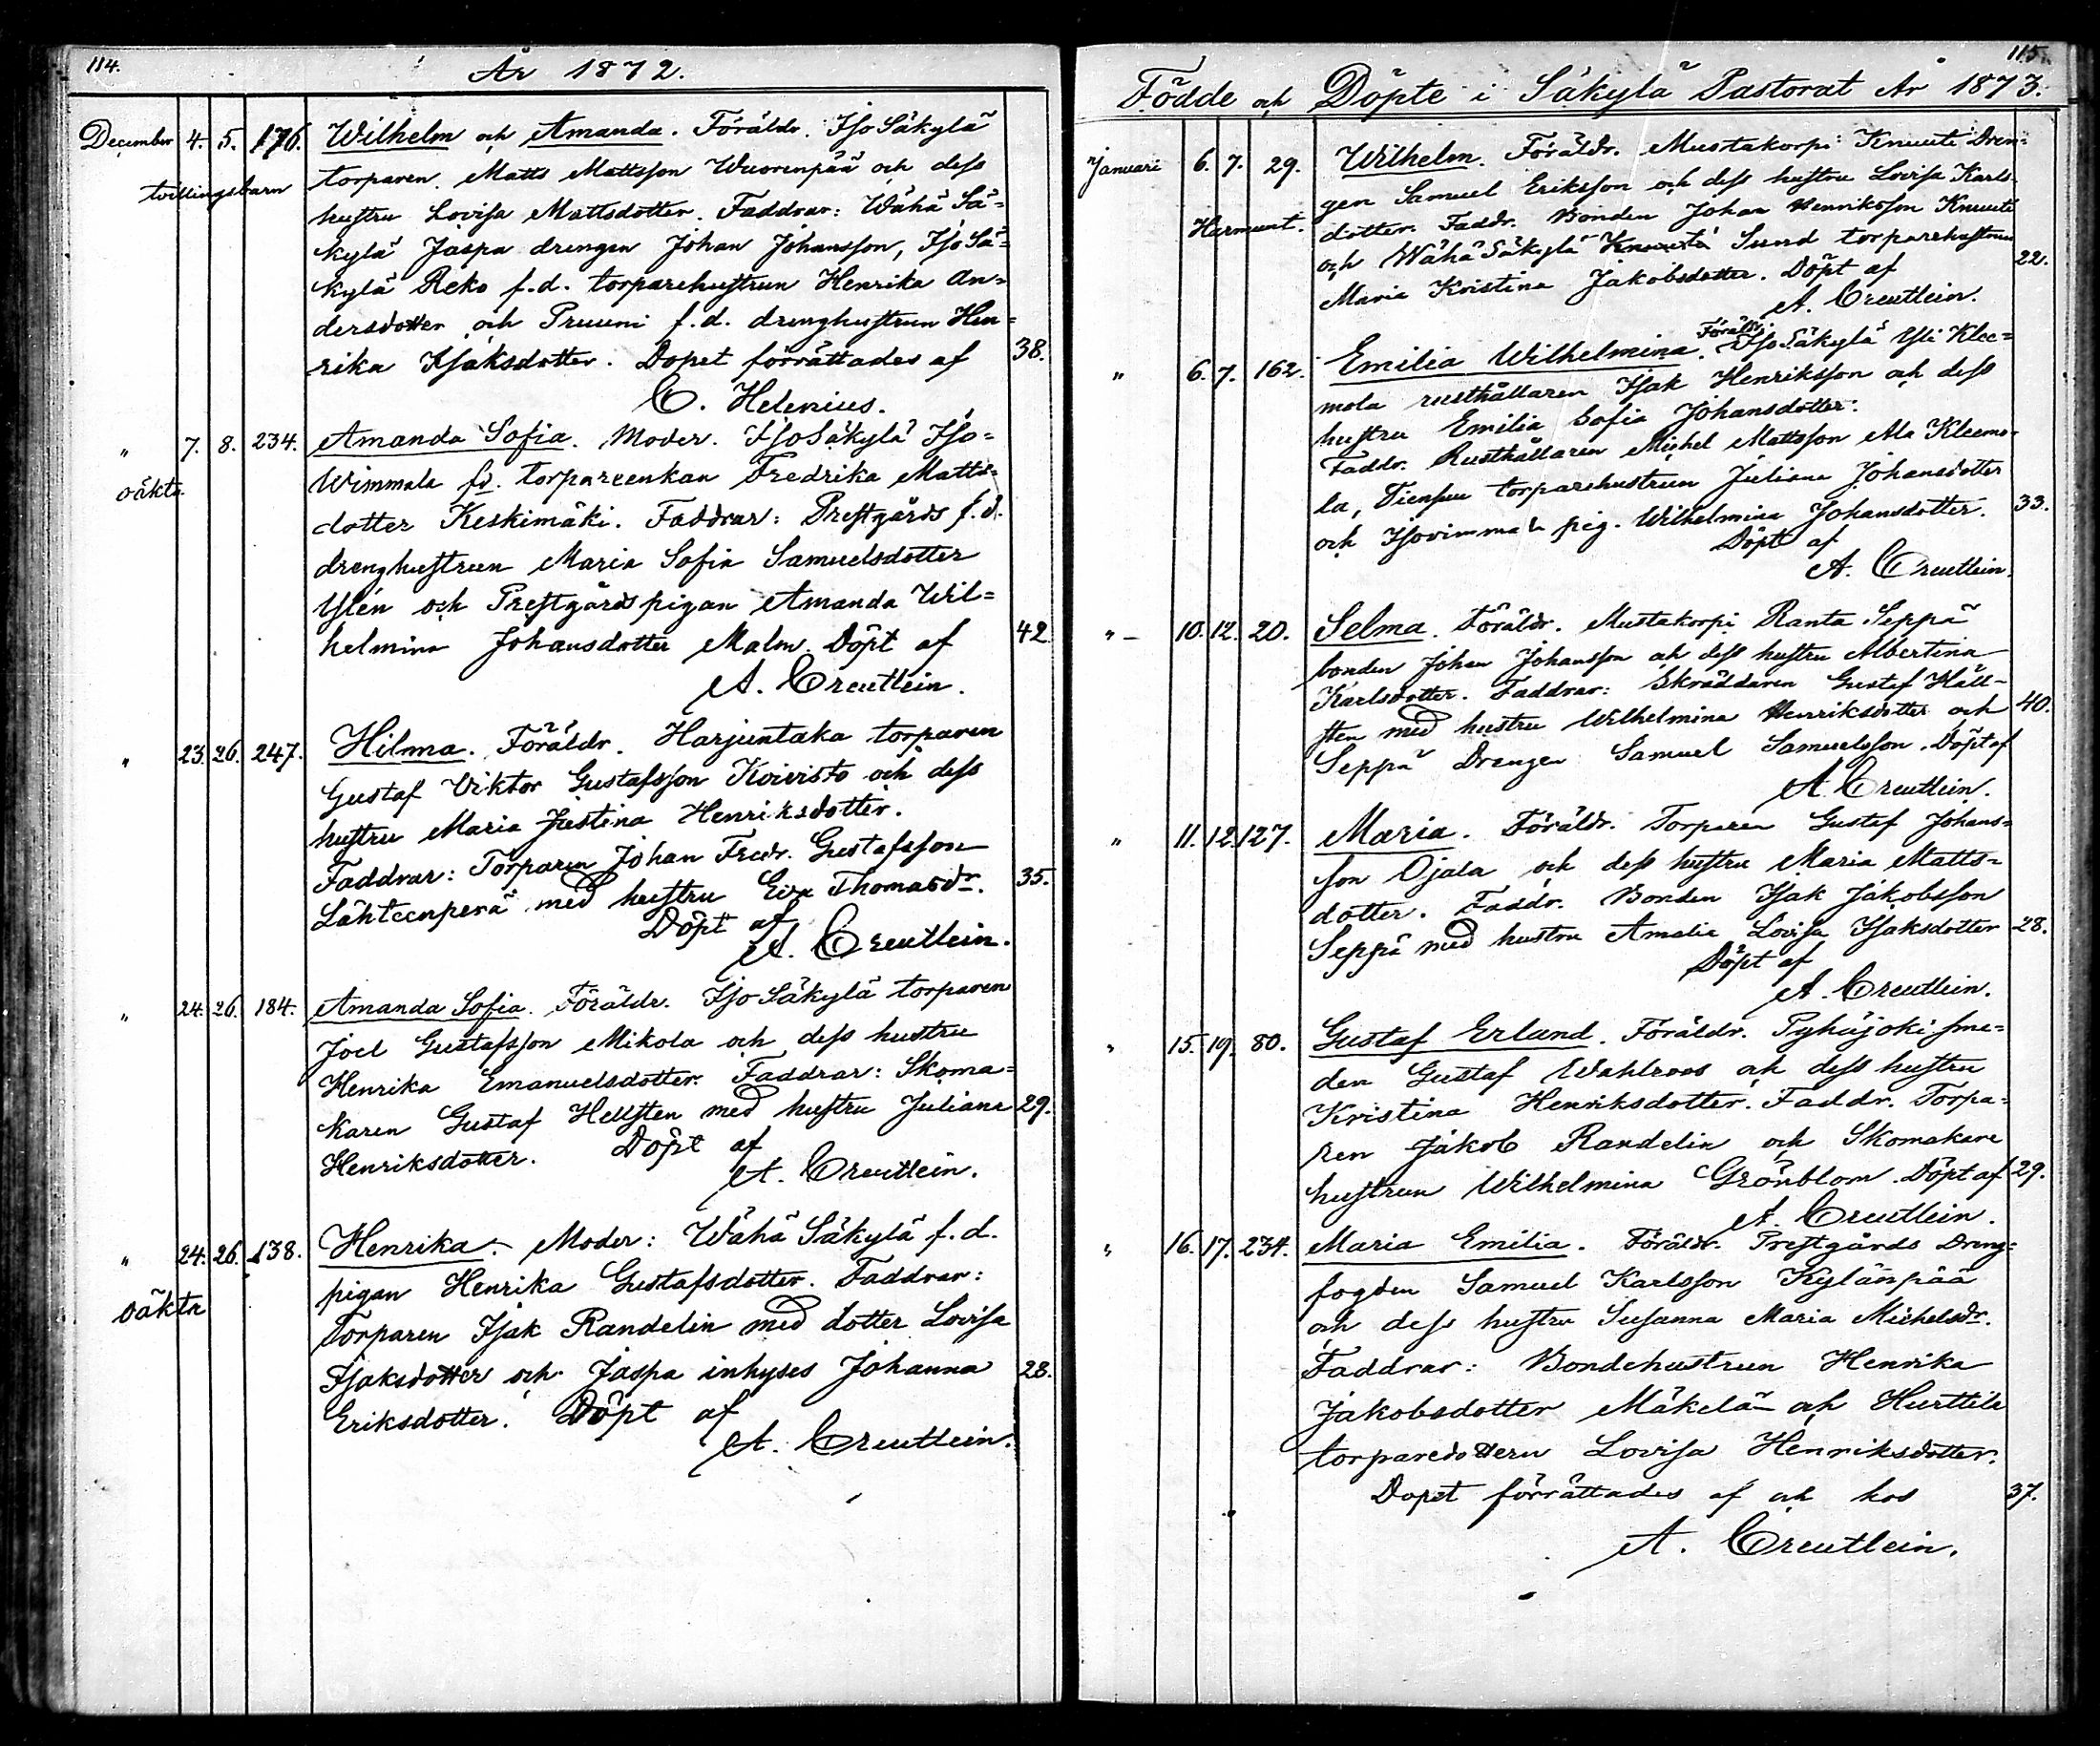 114.
År 1872.
December 4. 5. 176. Wilhelm och Amanda. Föräldr. Iso Säkylä
tvillingsbarn torparen Matts Mattsson Wuorenpää och dess
hustru Lovisa Mattsdotter. Faddrar: Wähä Sä=
kylä Jaspa drengen Johan Johansson, Iso Sä=
kylä Reko f.d. torparehustrun Henrika An=
dersdotter och Pruuni f.d. drenghustrun Hen=
rika Isaksdotter. Dopet förrättades af 38.
C. Helenius.
" 7. 8. 234. Amanda Sofia. Moder. Iso Säkylä Iso=
oäkta. Wimmala fd. torpareenkan Fredrika Matts=
dotter Keskimäki. Faddrar: Prestgårds f.d.
drenghustrun Maria Sofia Samuelsdotter
Ylén och Prestgårdspigan Amanda Wil=
helmina Johansdotter Malm. Döpt af 42
A. Creutlein.
" 23. 26. 247. Hilma. Föräldr. Harjuntaka torparen
Gustaf Viktor Gustafsson Koivisto och dess
hustru Maria Justina Henriksdotter.
Faddrar: Torparen Johan Fredr. Gustafsson
Lähteenperä med hustru Eva Thomasdr. 35.
Döpt af
A. Creutlein.
" 24. 26. 184. Amanda Sofia. Föräldr. Iso Säkylä torparen
Joel Gustafsson Mikola och dess hustru
Henrika Emanuelsdotter. Faddrar: Skoma=
karen Gustaf Hellsten med hustru Juliana 29.
Henriksdotter. Döpt af
A. Creutlein.
" 24. 26. 138. Henrika. Moder: Wähä Säkylä f.d.
oäkta pigan Henrika Gustafsdotter. Faddrar:
Torparen Isak Randelin med dotter Lovisa
Isaksdotter och Jaspa inhyses Johanna 28.
Eriksdotter. Döpt af
A. Creutlein.
115.
Födde och Döpte i Säkylä Pastorat År 1873.
Januari 6. 7. 29. Wilhelm. Föräldr. Mustakorpi Knuuti Dren=
gen Samuel Eriksson och dess hustru Lovisa Karls-
dotter. Faddr. Bonden Johan Henriksson Knuuti
och Wähä Säkylä Knuuti Sund torparehustrun 22.
Maria Kristina Jakobsdotter. Döpt af
A. Creutlein.
Föräldr.
" 6. 7. 162. Emilia Wilhelmina. Iso Säkylä Yli Klee=
mola rusthållaren Isak Henriksson och dess
hustru Emilia Sofia Johansdotter.
Faddr. Rusthållaren Michel Mattsson Ala Kleemo-
la, Tiensuu torparehustrun Juliana Johansdotter
och Isovimmala pig. Wilhelmina Johansdotter. 33.
Döpt af
A. Creutlein.
" 10. 12. 20. Selma. Föräldr. Mustakorpi Ranta Seppä
bonden Johan Johansson och dess hustru Albertina
Karlsdotter. Faddrar: Skräddaren Gustaf Häll-
sten med hustru Wilhelmina Henriksdotter och 40.
Seppä Drengen Samuel Samuelsson. Döpt af
A. Creutlein.
" 11. 12. 127. Maria. Föräldr. Torparen Gustaf Johans=
son Ojala och dess hustru Maria Matts=
dotter. Faddr. Bonden Isak Jakobsson
Seppä med hustru Amalia Lovisa Isaksdotter 28.
Döpt af
A. Creutlein.
" 15. 19. 80. Gustaf Erland. Föräldr. Pyhäjoki sme=
den Gustaf Wahlroos och dess hustru
Kristina Henriksdotter. Faddr. Torpa=
ren Jakob Randelin och Skomakare
hustrun Wilhelmina Grönblom. Döpt af 29.
A. Creutlein.
" 16. 17. 234. Maria Emilia. Föräldr. Prestgårds Dreng=
fogden Samuel Karlsson Kylänpää
och dess hustru Susanna Maria Michelsdr.
Faddrar: Bondehustrun Henrika
Jakobsdotter Mäkelä och Hurttila
torparedottern Lovisa Henriksdotter.
Dopet förrättades af och hos 37.
A. Creutlein.